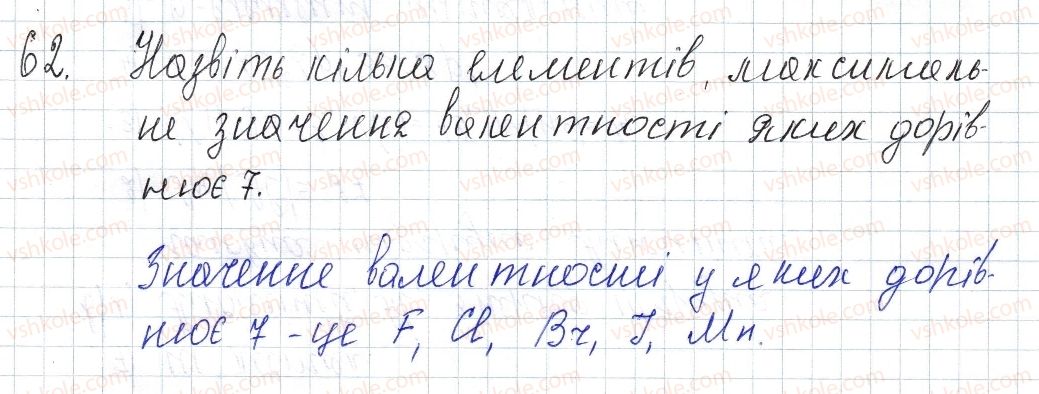 62. Назвіть кілька елементів, максималь-
не значення валентності яких дорів-
нює 7.
Значення валентності у яких дорів-
нює 7 - це F, Cl, Br, I, Mn.